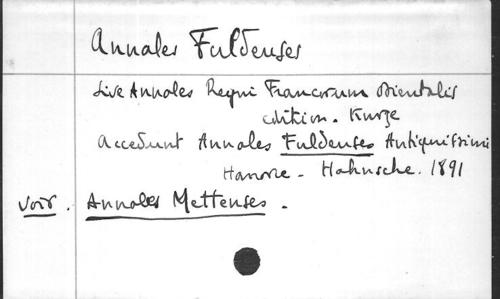 Annales Fuldenses
Sive Annales Regni Francorum Orientalis
edition. Kurze
accedunt Annales Fuldenses Antiquissimi
Hanovre - Hahnsche. 1891
Voir. Annales Mettenses.